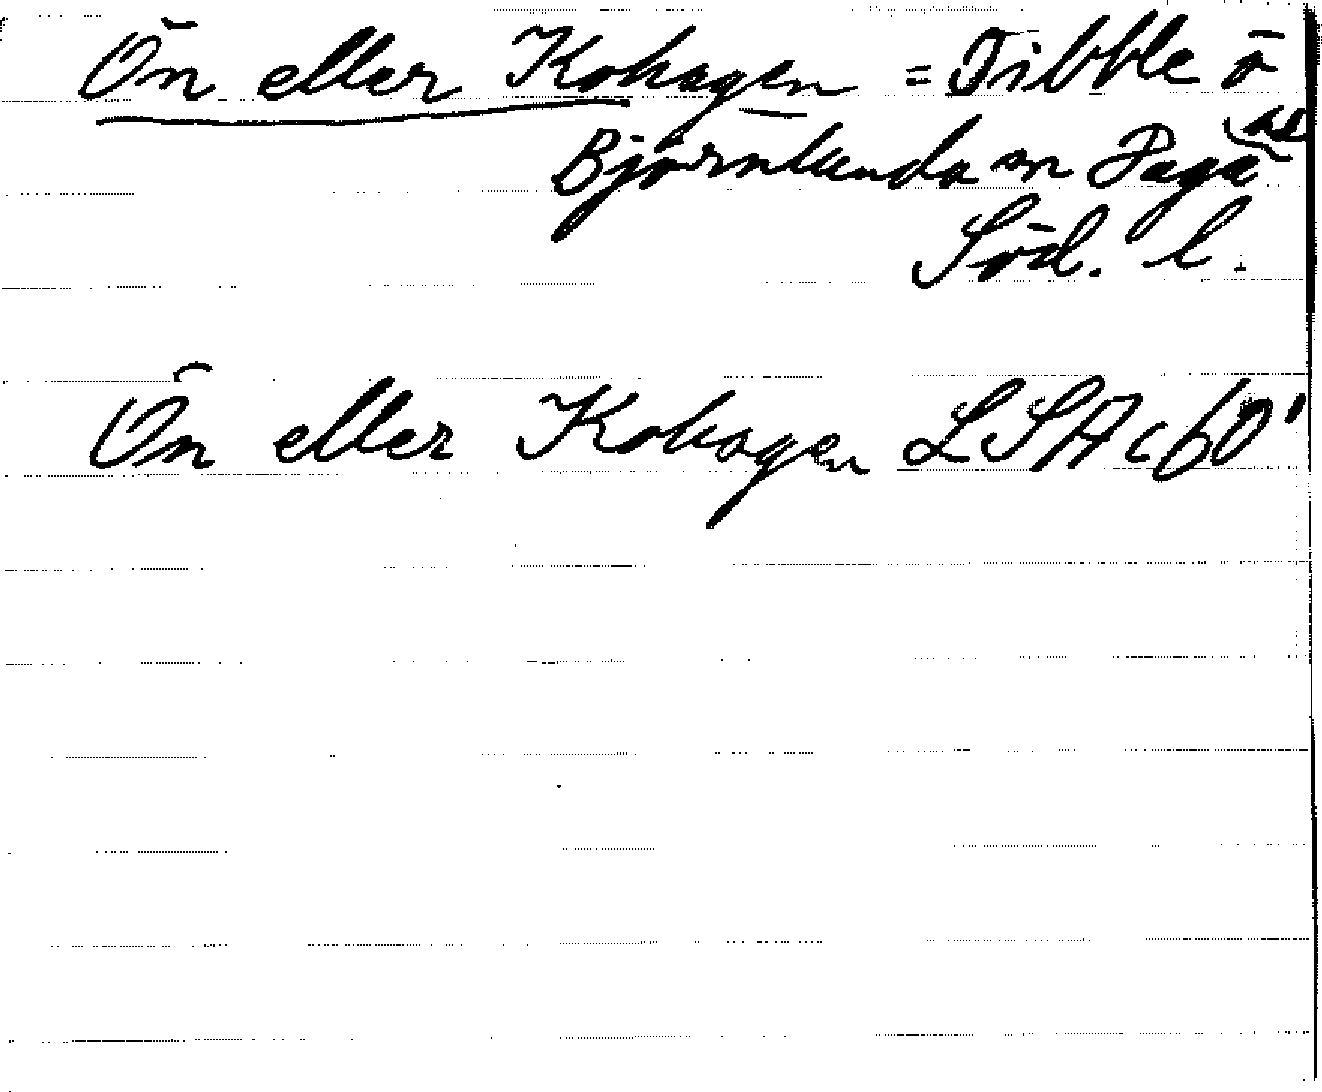 Ön eller Kohagen = Tibble ö
Björnlunda sn Daga hd
Söd. l.
Ön eller Kohagen LSA c 60'